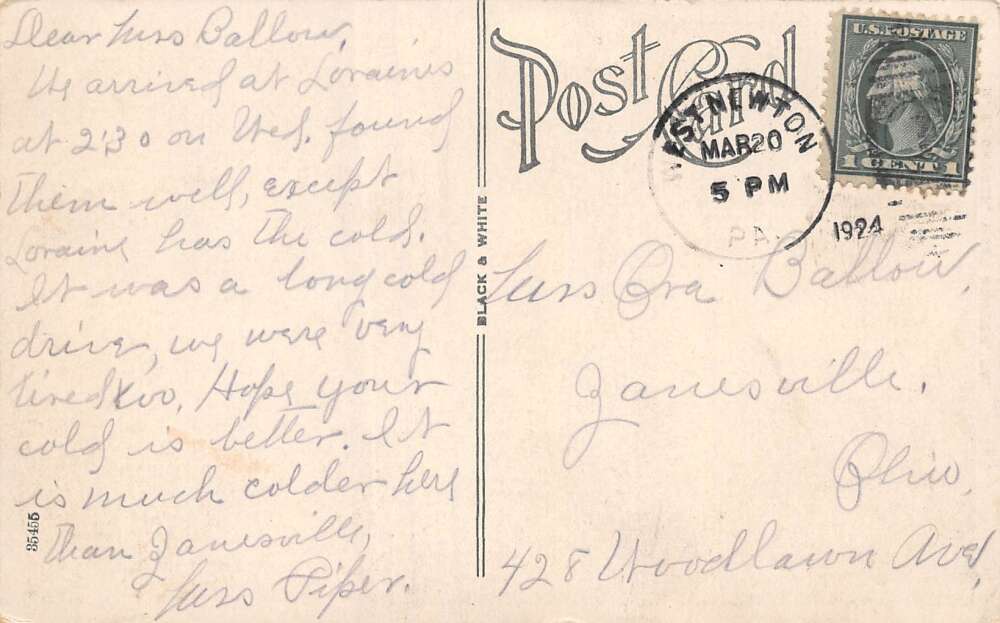 Dear Miss Ballou,
We arrived at Loraines
at 2:30 on Wed. found
them well, except
Loraine has the cold.
It was a long cold
drive, we were very
tired too, Hope your
cold is better. It
is much colder here
than Zanesville,
Miss Piper.
35455
BLACK & WHITE
Post Card
WEST NEWTON
MAR 20
5 PM
PA.
1924
U.S. POSTAGE
1 CENT 1
Miss Ora Ballou,
Zanesville,
Ohio,
428 Woodlawn Ave,